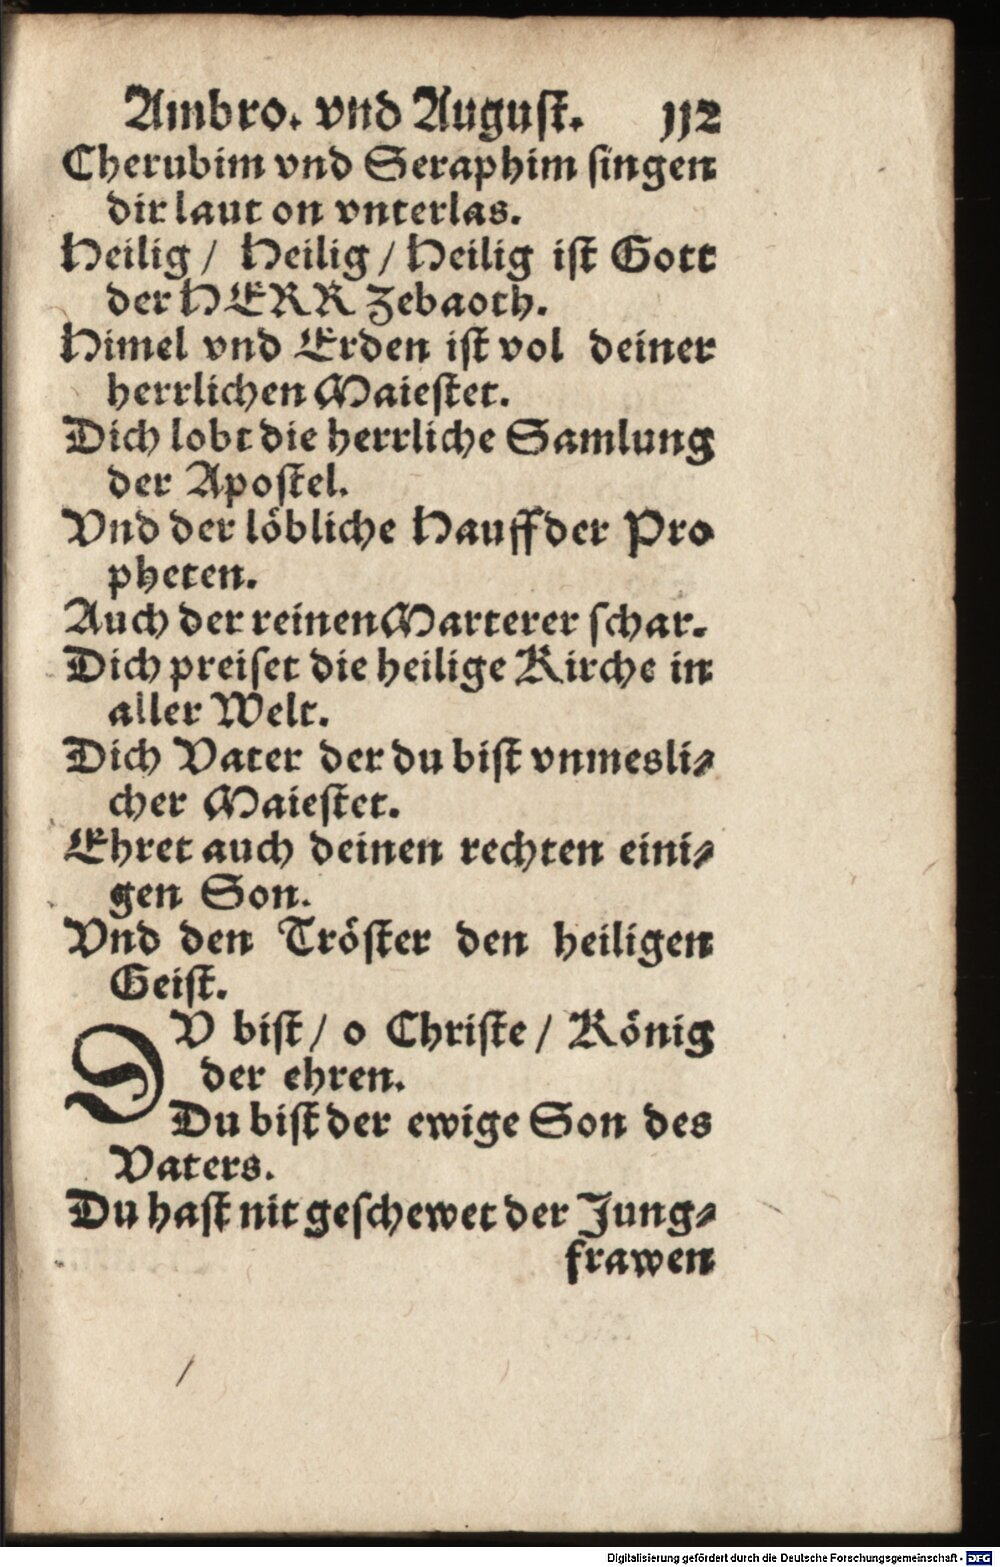 Ambro. vnd August. 112
Cherubim vnd Seraphim singen
dir laut on vnterlas.
Heilig / Heilig / Heilig ist Gott
der HERR Zebaoth.
Himel vnd Erden ist vol deiner
herrlichen Maiestet.
Dich lobt die herrliche Samlung
der Apostel.
Vnd der löbliche Hauff der Pro
pheten.
Auch der reinen Marterer schar.
Dich preiset die heilige Kirche in
aller Welt.
Dich Vater der du bist vnmesli⸗
cher Maiestet.
Ehret auch deinen rechten eini⸗
gen Son.
Vnd den Tröster den heiligen
Geist.
DV bist / o Christe / König
der ehren.
Du bist der ewige Son des
Vaters.
Du hast nit geschewet der Jung⸗
frawen
Digitalisierung gefördert durch die Deutsche Forschungsgemeinschaft - DFG